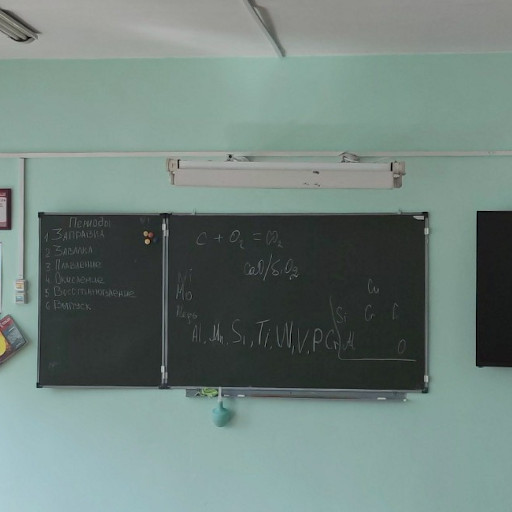 Периоды
1 Заправка
2 Завалка
3 Плавление
4 Окисление
5 Восстановление
6 Выпуск
C + O₂ = CO₂
CaO/SiO₂
Ni
Mo
Al, Mn, Si, Ti, W, V, P, Cr
Si Cr
Cu